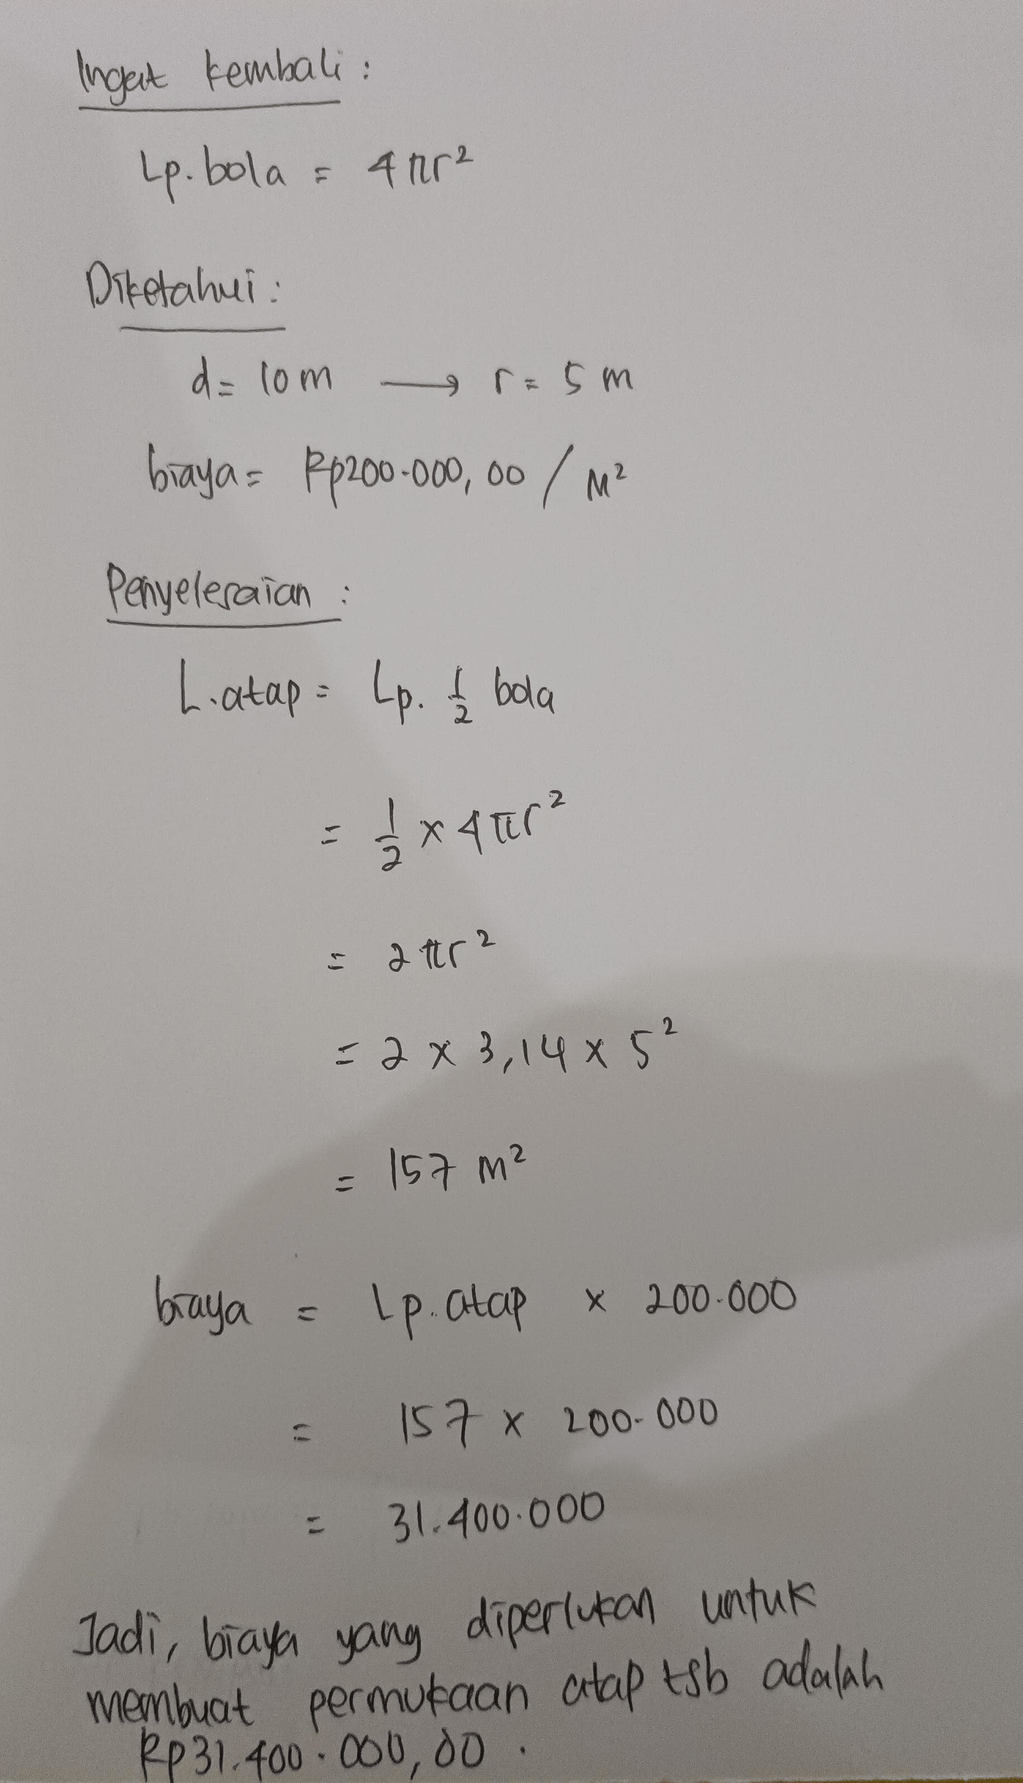 Ingat kembali :
Lp. bola = 4πr²
Diketahui :
d = 10 m → r = 5 m
biaya = Rp200.000,00 / m²
Penyelesaian :
L. atap = Lp. 1/2 bola
= 1/2 × 4πr²
= 2πr²
= 2 × 3,14 × 5²
= 157 m²
biaya = Lp. atap × 200.000
= 157 × 200.000
= 31.400.000
Jadi, biaya yang diperlukan untuk
membuat permukaan atap tsb adalah
Rp31.400.000,00 .